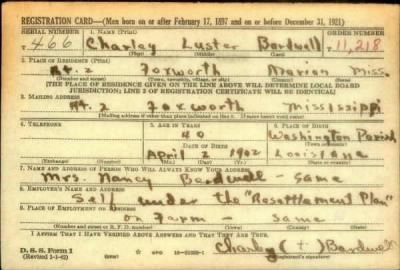 REGISTRATION CARD—(Men born on or after February 17, 1897 and on or before December 31, 1921)
SERIAL NUMBER 1. NAME (Print) ORDER NUMBER
T 466 Charley Luster Bardwell T 11,218
(First) (Middle) (Last)
2. PLACE OF RESIDENCE (Print)
Rt. 2 Foxworth Marion Miss.
(Number and street) (Town, township, village, or city) (County) (State)
[THE PLACE OF RESIDENCE GIVEN ON THE LINE ABOVE WILL DETERMINE LOCAL BOARD
JURISDICTION; LINE 2 OF REGISTRATION CERTIFICATE WILL BE IDENTICAL]
3. MAILING ADDRESS
Rt. 2 Foxworth Mississippi
[Mailing address if other than place indicated on line 2. If same insert word same]
4. TELEPHONE 5. AGE IN YEARS 6. PLACE OF BIRTH
40 Washington Parish
DATE OF BIRTH (Town or county)
April 2 1902 Louisiana
(Exchange) (Number) (Mo.) (Day) (Yr.) (State or country)
7. NAME AND ADDRESS OF PERSON WHO WILL ALWAYS KNOW YOUR ADDRESS
Mrs. Nancy Bardwell - same
8. EMPLOYER'S NAME AND ADDRESS
Self under the "Resettlement Plan"
9. PLACE OF EMPLOYMENT OR BUSINESS
on Farm - same
(Number and street or R. F. D. number) (Town) (County) (State)
I AFFIRM THAT I HAVE VERIFIED ABOVE ANSWERS AND THAT THEY ARE TRUE.
D. S. S. Form 1 Charley (+) Bardwell
(Revised 1-1-42) (over) (Registrant's signature)